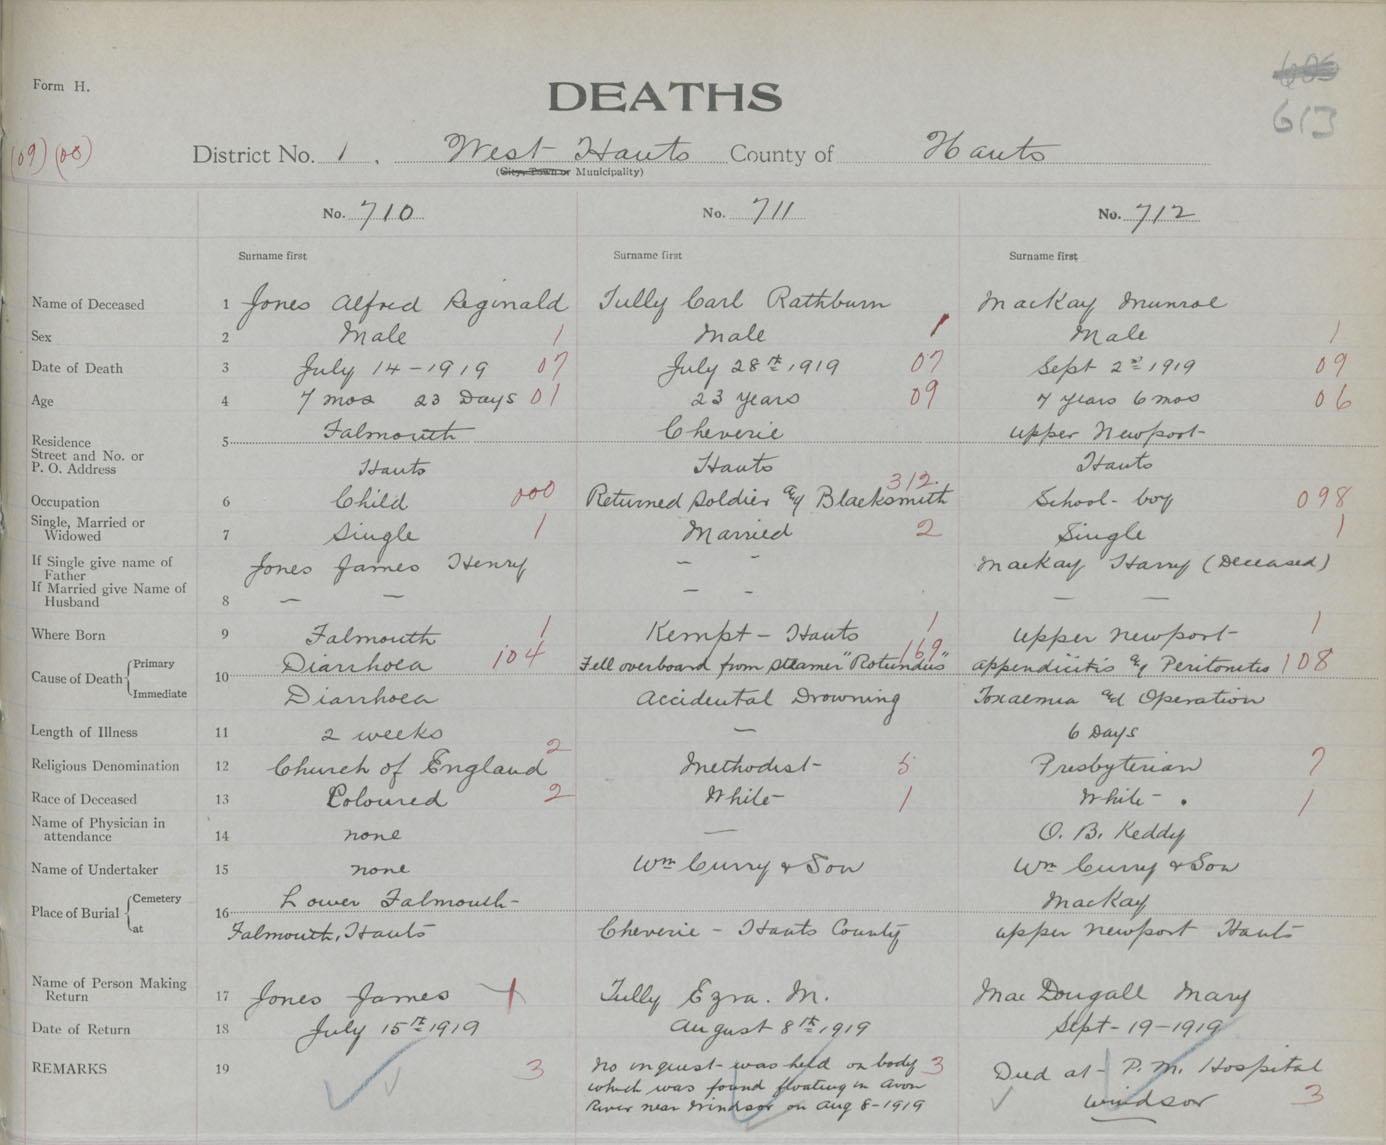 Form H.
DEATHS
613
(09) (08)
District No. 1, West Hants County of Hants
(City, Town or Municipality)
No. 710 No. 711 No. 712
Surname first Surname first Surname first
Name of Deceased 1 Jones Alfred Reginald Tully Carl Rathburn MacKay Munroe
Sex 2 Male 1 Male 1 Male 1
Date of Death 3 July 14-1919 07 July 28th 1919 07 Sept 2nd 1919 09
Age 4 7 mos 23 Days 01 23 years 09 7 years 6 mos 06
Residence 5 Falmouth Cheverie Upper Newport
Street and No. or
P. O. Address Hants Hants Hants
312.
Occupation 6 Child 000 Returned Soldier & Blacksmith School-boy 098
Single, Married or
Widowed 7 Single 1 Married 2 Single 1
If Single give name of
Father Jones James Henry - MacKay Harry (Deceased)
If Married give Name of
Husband 8 — — — - — —
Where Born 9 Falmouth 1 Kempt - Hants 1 Upper Newport 1
Cause of Death Primary 10 Diarrhoea 104 Fell overboard from steamer "Rotundus" 169 Appendicitis & Peritonitis 108
Immediate Diarrhoea Accidental Drowning Toxaemia and Operation
Length of Illness 11 2 weeks — 6 Days
Religious Denomination 12 Church of England 2 Methodist 5 Presbyterian 7
Race of Deceased 13 Coloured 2 White 1 White 1
Name of Physician in
attendance 14 none — O. B. Keddy
Name of Undertaker 15 none Wm Curry & Son Wm Curry & Son
Place of Burial Cemetery 16 Lower Falmouth MacKay
at Falmouth, Hants Cheverie - Hants County Upper Newport Hants
Name of Person Making
Return 17 Jones James 1 Tully Ezra. M. MacDougall Mary
Date of Return 18 July 15th 1919 August 8th 1919 Sept-19-1919
REMARKS 19 3 No inquest was held on body 3 Died at P. M. Hospital
which was found floating in Avon
River near Windsor on Aug 8-1919 Windsor 3